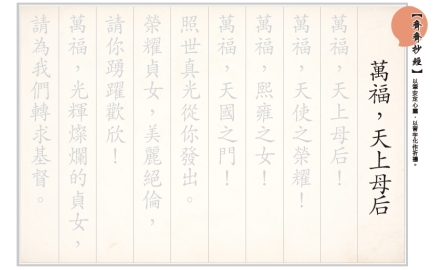 【齊齊抄經】
以靈安定心靈，以書字化作祈禱。
萬福，天上母后
萬福，天上母后！
萬福，天使之榮耀！
萬福，熙雍之女！
萬福，天國之門！
照世真光從你發出。
榮耀貞女，美麗絕倫，
請你踴躍歡欣！
萬福，光輝燦爛的貞女，
請為我們轉求基督。